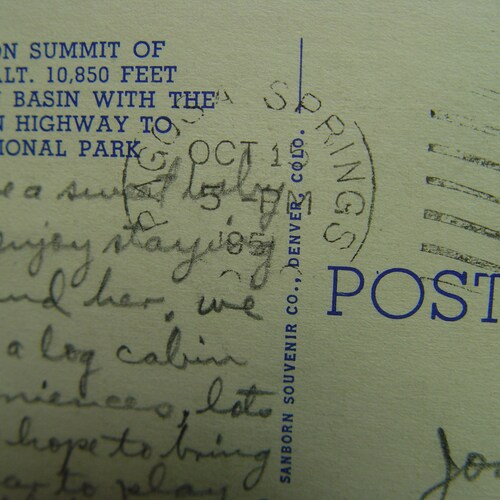 ON SUMMIT OF
ALT. 10,850 FEET
BASIN WITH THE
N HIGHWAY TO
IONAL PARK
PAGOSA SPRINGS
OCT 1
5 - PM
195
SANBORN SOUVENIR CO., DENVER, COLO.
POST
e a sweet baby
enjoy staying
and her, we
a log cabin
niences, lots
hope to bring
ar to play
Jo